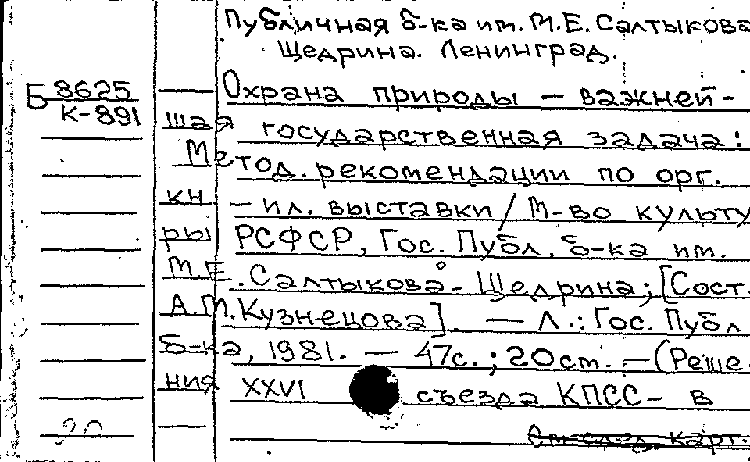 Публичная б-ка им. М.Е. Салтыкова
Щедрина. Ленинград.
Б 8625
К-891
Охрана природы — важней-
шая государственная задача:
Метод. рекомендации по орг.
кн. - ил. выставки / М-во культу
ры РСФСР, Гос. Публ. б-ка им.
М.Е. Салтыкова-Щедрина; [Сост.
А.М. Кузнецова]. — Л.: Гос. Публ
б-ка, 1981. — 47с.; 20см. — (Реше-
ния XXVI съезда КПСС - в
20
См. след. карт.